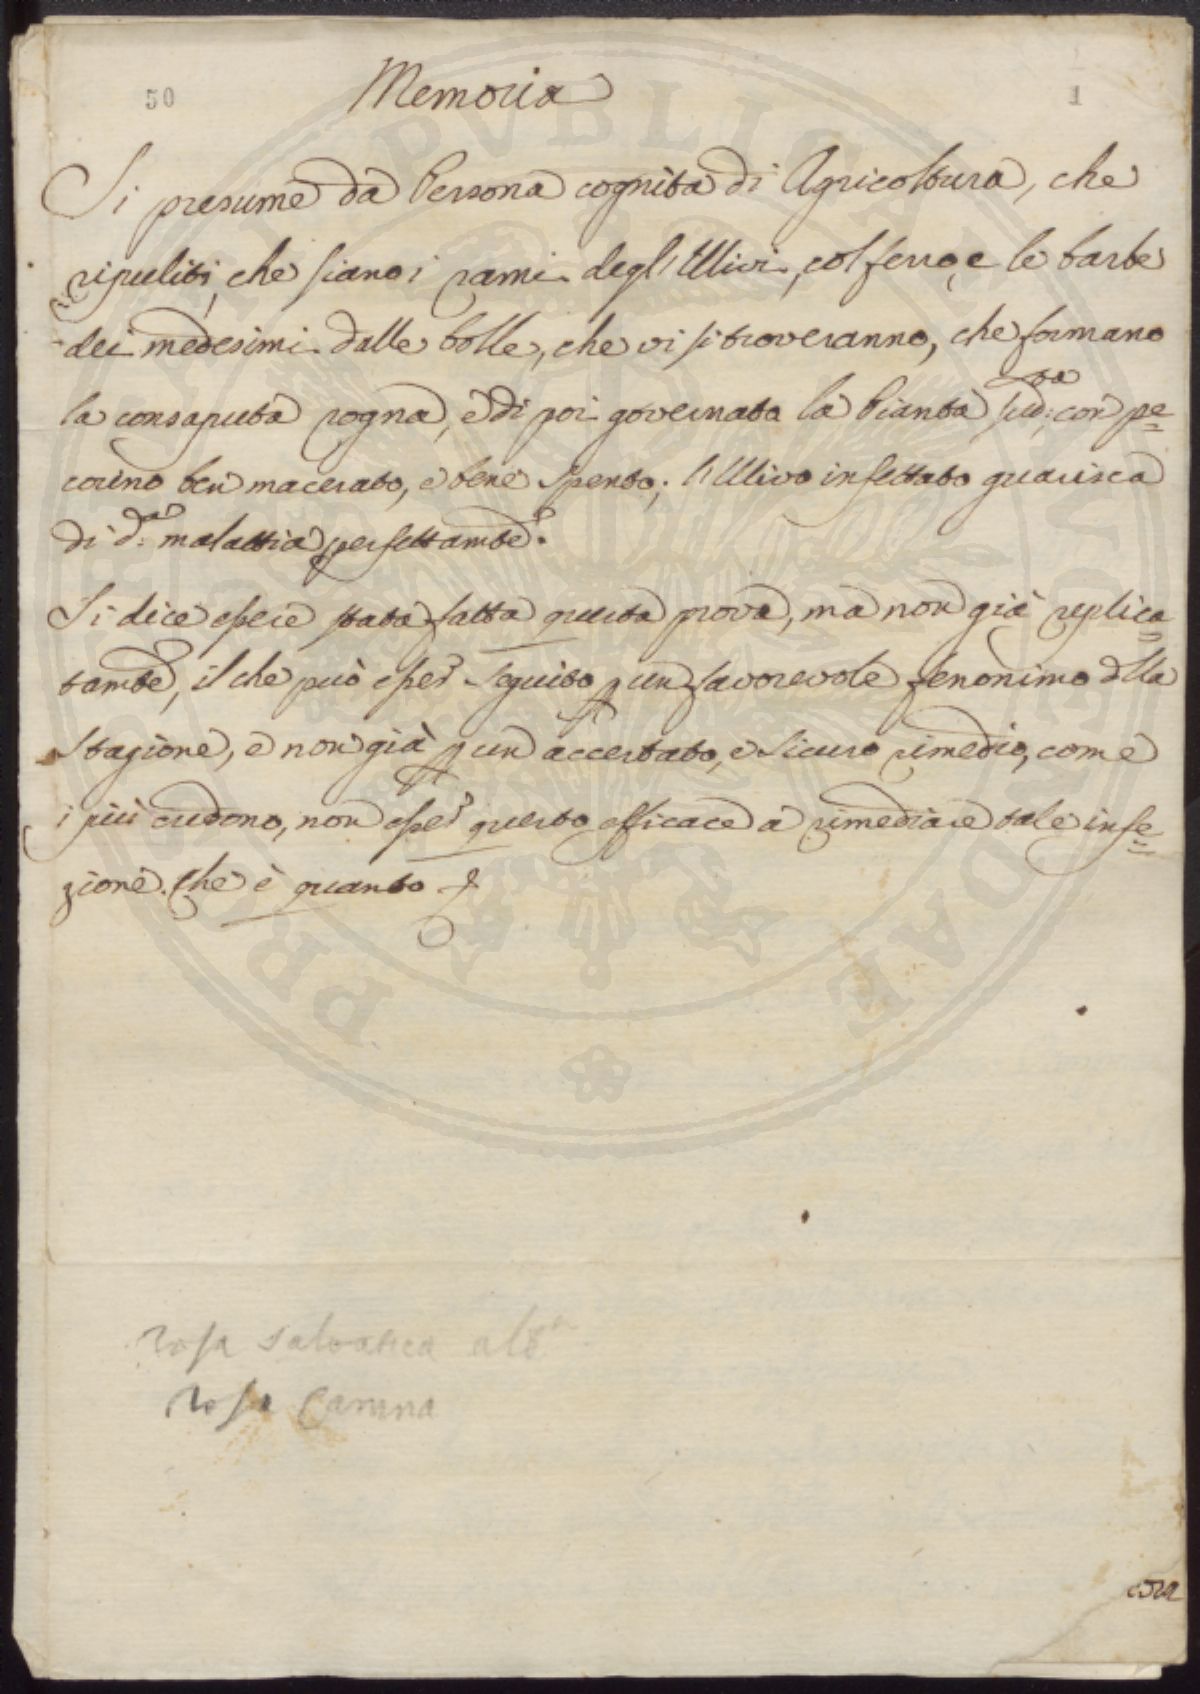 50 Memoria 1
Si presume dà Persona cognita di Agricoltura, che
ripuliti, che siano i rami degl'Ulivi, col ferro, e le barbe
dei medesimi dalle bolle, che vi si troveranno, che formano
la consaputa rogna, e di poi governata la Pianta sud:ta con pe=
corino ben macerato, e bene spento; l'Ulivo infettato guarisca
di d:a malattia perfettamte.
Si dice essere stata fatta questa prova, ma non già replica=
tamte, il che può esser seguito p un favorevole fenonimo dlla
stagione, e non già p un accertato, e sicuro rimedio, come
i più credono, non esser questo efficace a rimediare tale infe=
zione. Che è quanto
rosa salvatica
rosa Canina
PVBLICAE